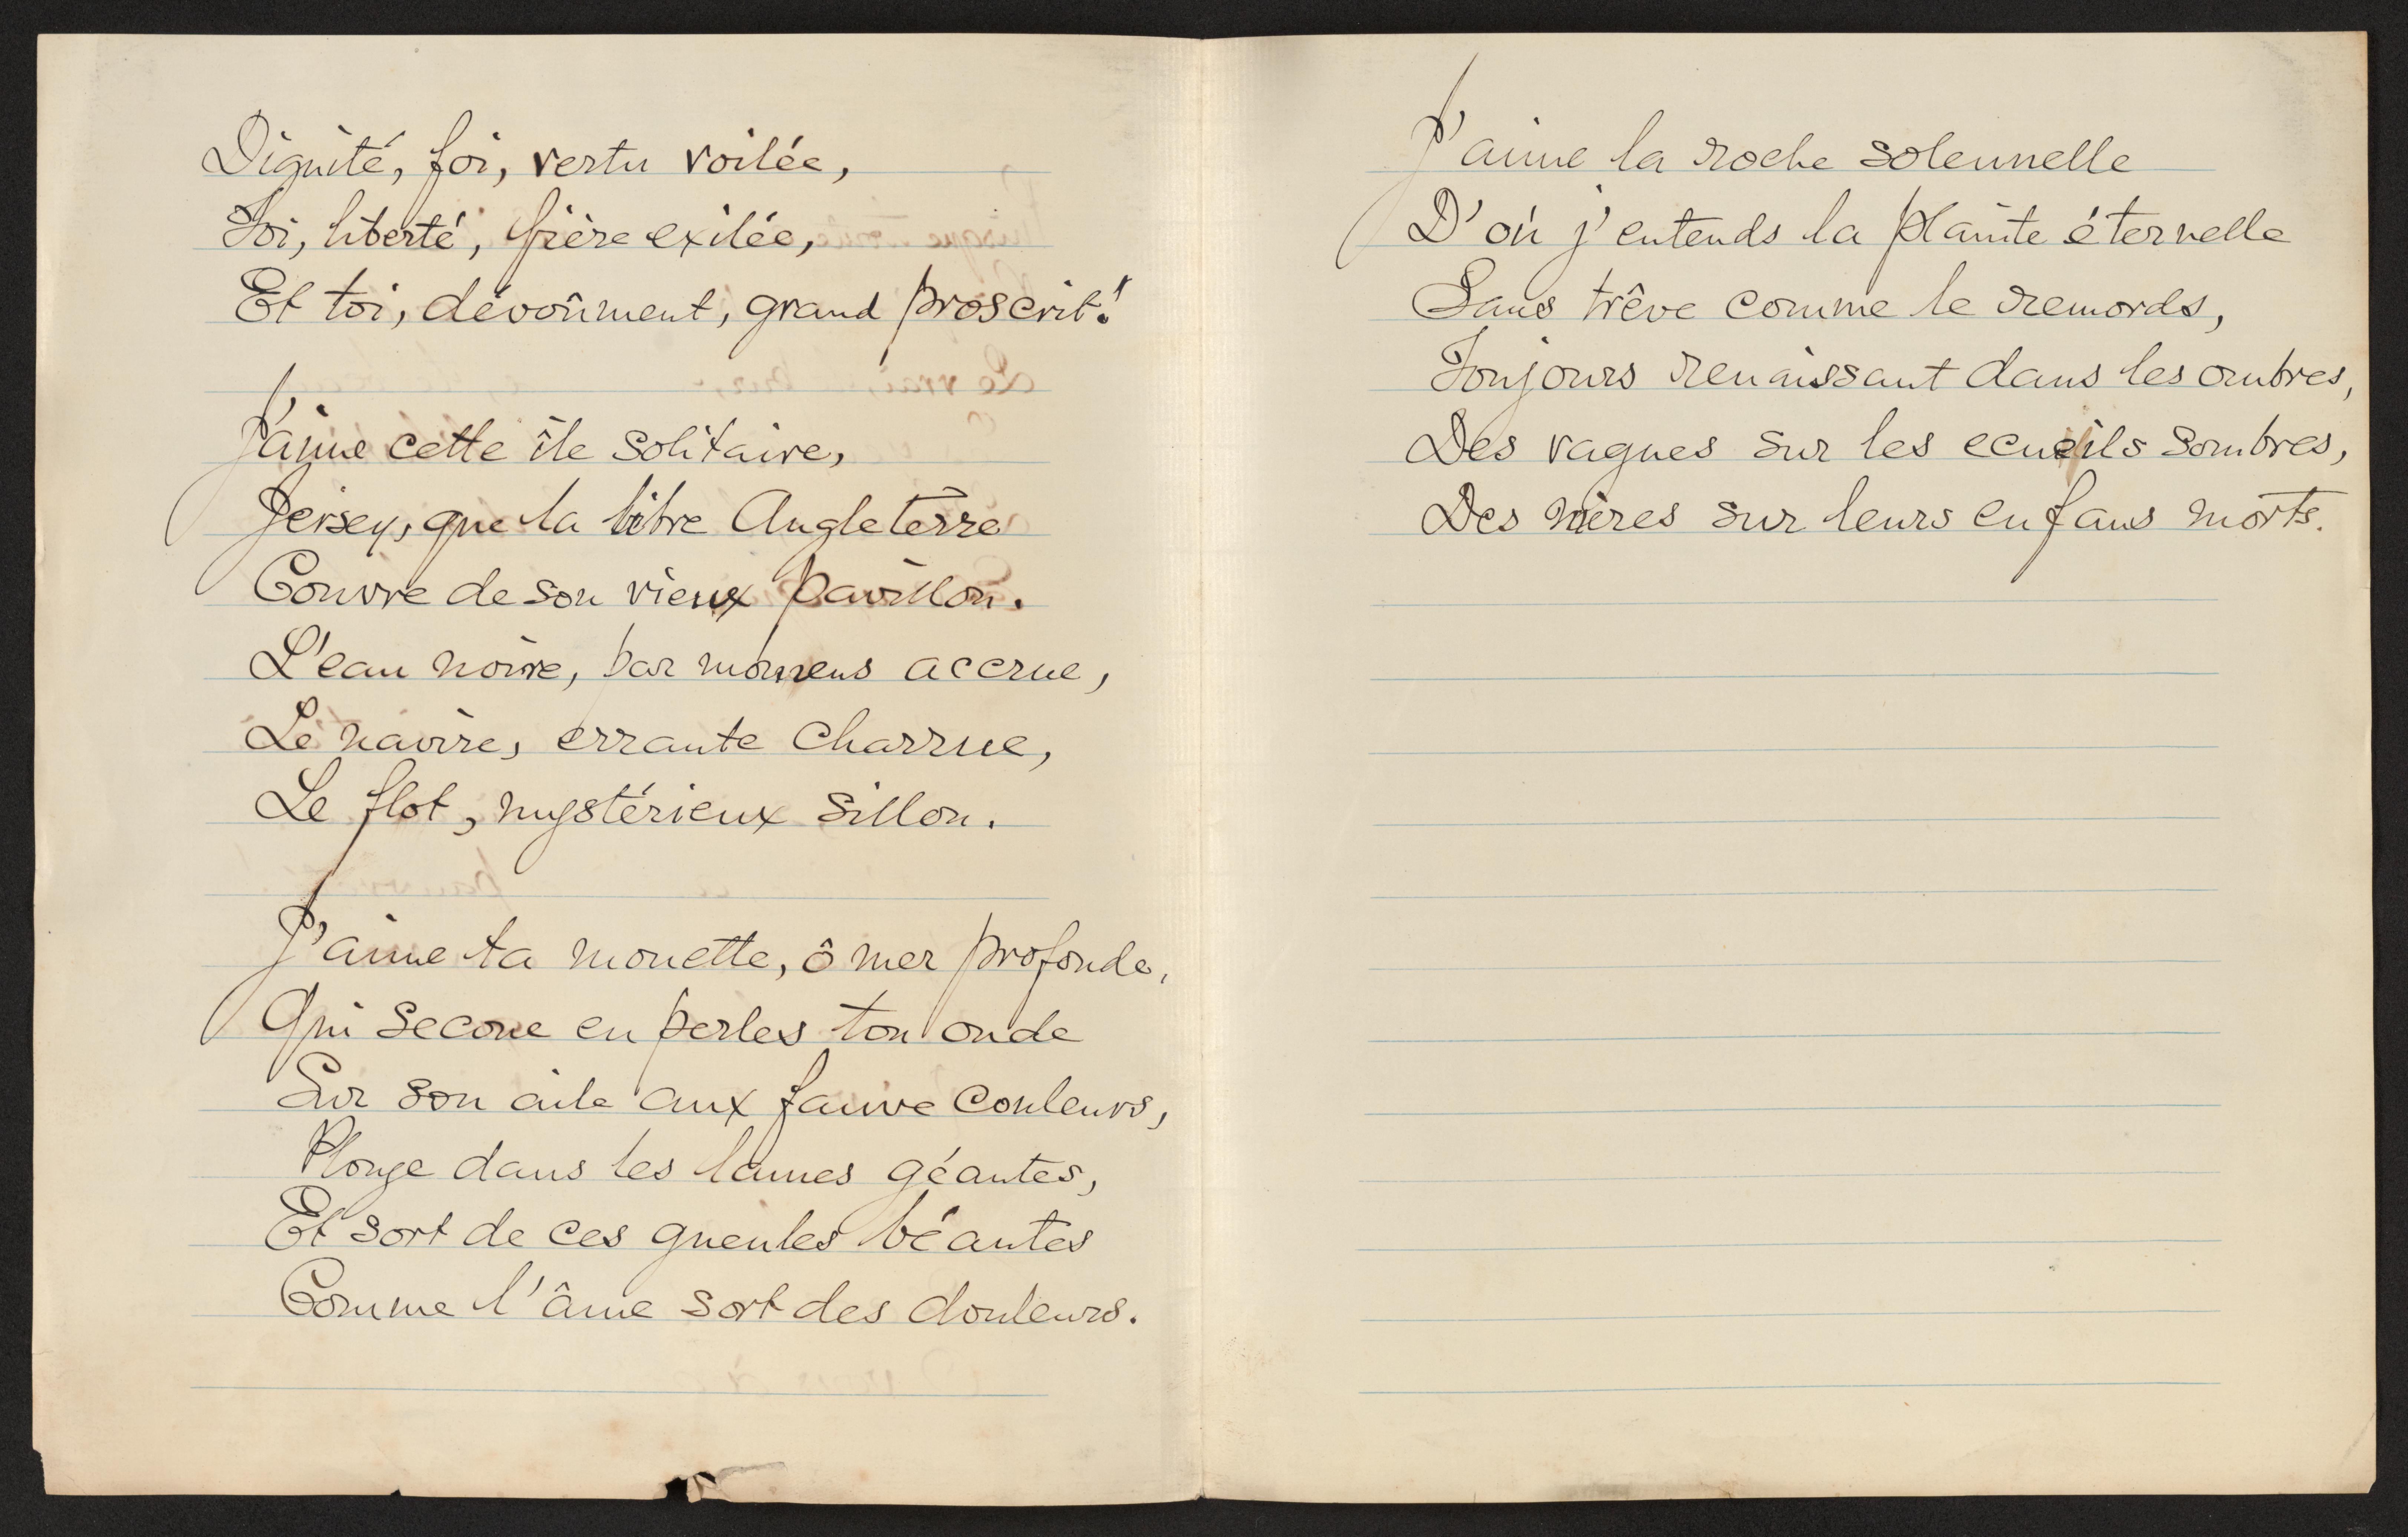 Dignité, foi, vertu voilée,
Toi, liberté, fière exilée,
Et toi, dévoûment, grand proscrit!
J'aime cette île solitaire,
Jersey, que la libre Angleterre
Couvre de son vieux pavillon.
L'eau noire, par momens accrue,
Le navire, errante charrue,
Le flot, mystérieux sillon.
J'aime ta mouette, ô mer profonde,
Qui secoue en perles ton onde
Sur son aile aux fauve couleurs,
Plonge dans les lames géantes,
Et sort de ces gueules béantes
Comme l'âme sort des douleurs.
J'aime la roche solennelle
D'où j'entends la plainte éternelle
Sans trêve comme le remords,
Toujours renaissant dans les ombres,
Des vagues sur les ecueils sombres,
Des mères sur leurs enfans morts.